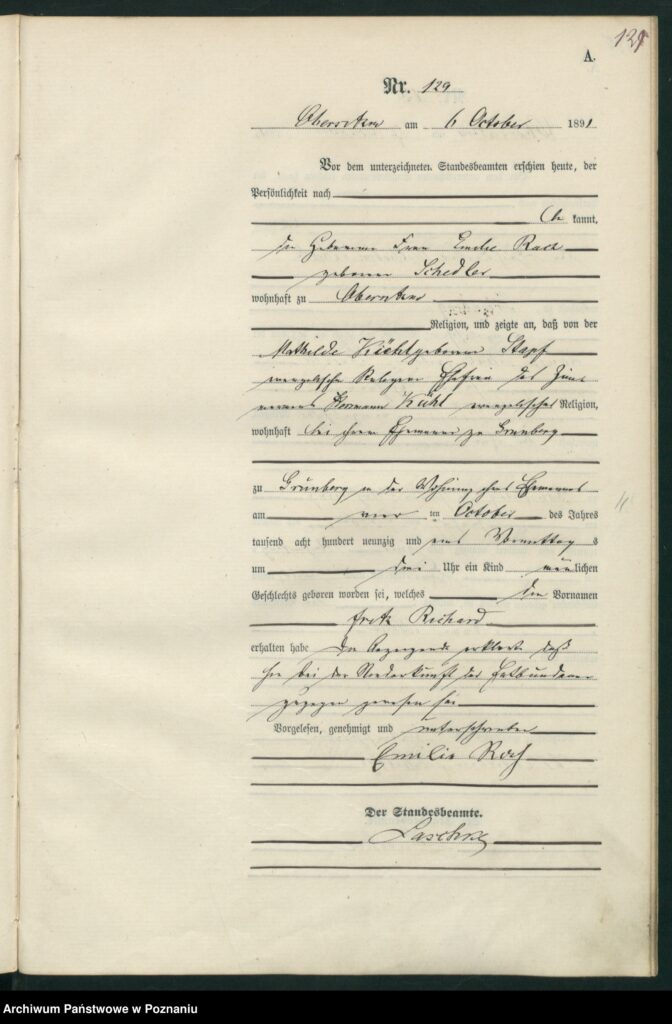 129
A.
Nr. 129
Obersitzko am 6 October 1891
Vor dem unterzeichneten Standesbeamten erschien heute, der
Persönlichkeit nach
be kannt,
die Hebamme Frau Emilie
geborene Schedler
wohnhaft zu Obersitzko
Religion, und zeigte an, daß von der
Mathilde Kühl geborene Stapf
evangelischer Religion Ehefrau des Zim
Hermann Kühl evangelischer Religion,
wohnhaft bei ihrem Ehemanne zu Grünberg
zu Grünberg in der Wohnung ihres Ehemannes
am vier ten October des Jahres
tausend acht hundert neunzig und eins Vormittag s
um drei Uhr ein Kind männlichen
Geschlechts geboren worden sei, welches den Vornamen
Fritz Richard
erhalten habe Die Anzeigende erklärte daß
sie bei der Niederkunft der Entbundenen
zugegen gewesen sei
Vorgelesen, genehmigt und unterschrieben
Emilie
Der Standesbeamte.
Archiwum Państwowe w Poznaniu